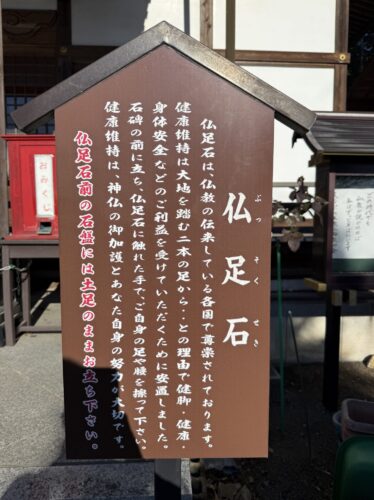 仏足石
ぶっそくせき
仏足石は、仏教の伝来している各国で尊崇されております。
健康維持は大地を踏む二本の足から‥との理由で健脚・健康・
身体安全などのご利益を受けていただくために安置しました。
石碑の前に立ち、仏足石に触れた手で、ご自身の足や腰を擦って下さい。
健康維持は、神仏の御加護とあなた自身の努力が大切です。
仏足石前の石盤には土足のままお立ち下さい。
おみくじ